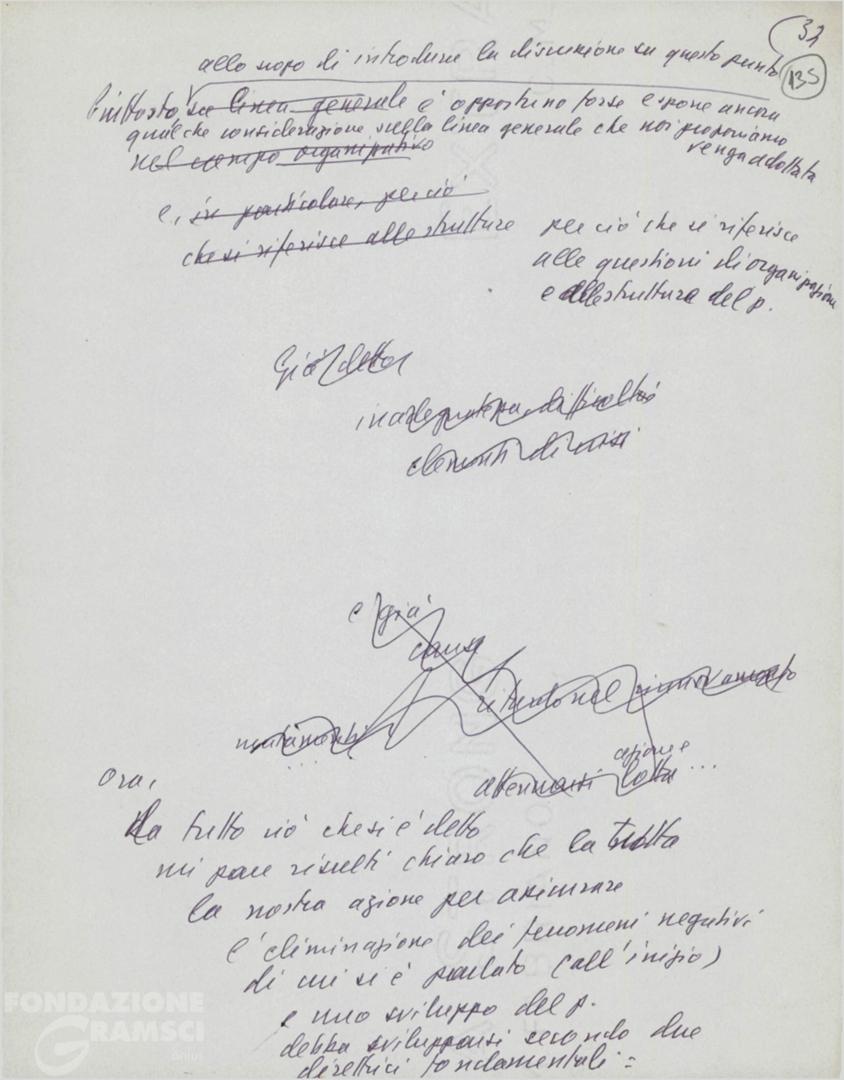 32
135
allo scopo di introdurre la discussione su questo punto
Piuttosto, su linea generale è opportuno forse esporre ancora
qualche considerazione sulla linea generale che noi proponiamo
venga adottata
nel campo organizzativo
e, in particolare, per ciò
che si riferisce alle strutture
per ciò che si riferisce
alle questioni di organizzazione
e alle strutture del p.
Già detto
inadeguatezza, difficoltà
elementi di crisi
e già
causa
ritardo nel rinnovamento
mutamenti
...
azione e
attenuarsi lotta ...
Ora,
da tutto ciò che si è detto
mi pare risulti chiaro che la
la nostra azione per assicurare
l'eliminazione dei fenomeni negativi
di cui si è parlato (all'inizio)
e uno sviluppo del p.
debba svilupparsi secondo due
direttrici fondamentali =
FONDAZIONE
GRAMSCI
onlus